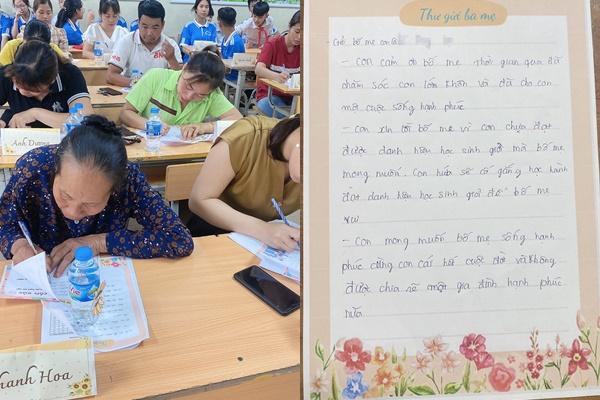 Ánh Dương
Thanh Hoa
Thư gửi bố mẹ
- Gửi bố mẹ con là
- Con cảm ơn bố mẹ thời gian qua đã
chăm sóc con lớn khôn và đã cho con
một cuộc sống hạnh phúc
- Con xin lỗi bố mẹ vì con chưa đạt
được danh hiệu học sinh giỏi mà bố mẹ
mong muốn. Con hứa sẽ cố gắng học hành
đạt danh hiệu học sinh giỏi để bố mẹ
vui
- Con mong muốn bố mẹ sống hạnh
phúc cùng con cái hết cuộc đời và không
được chia sẻ một gia đình hạnh phúc
nữa